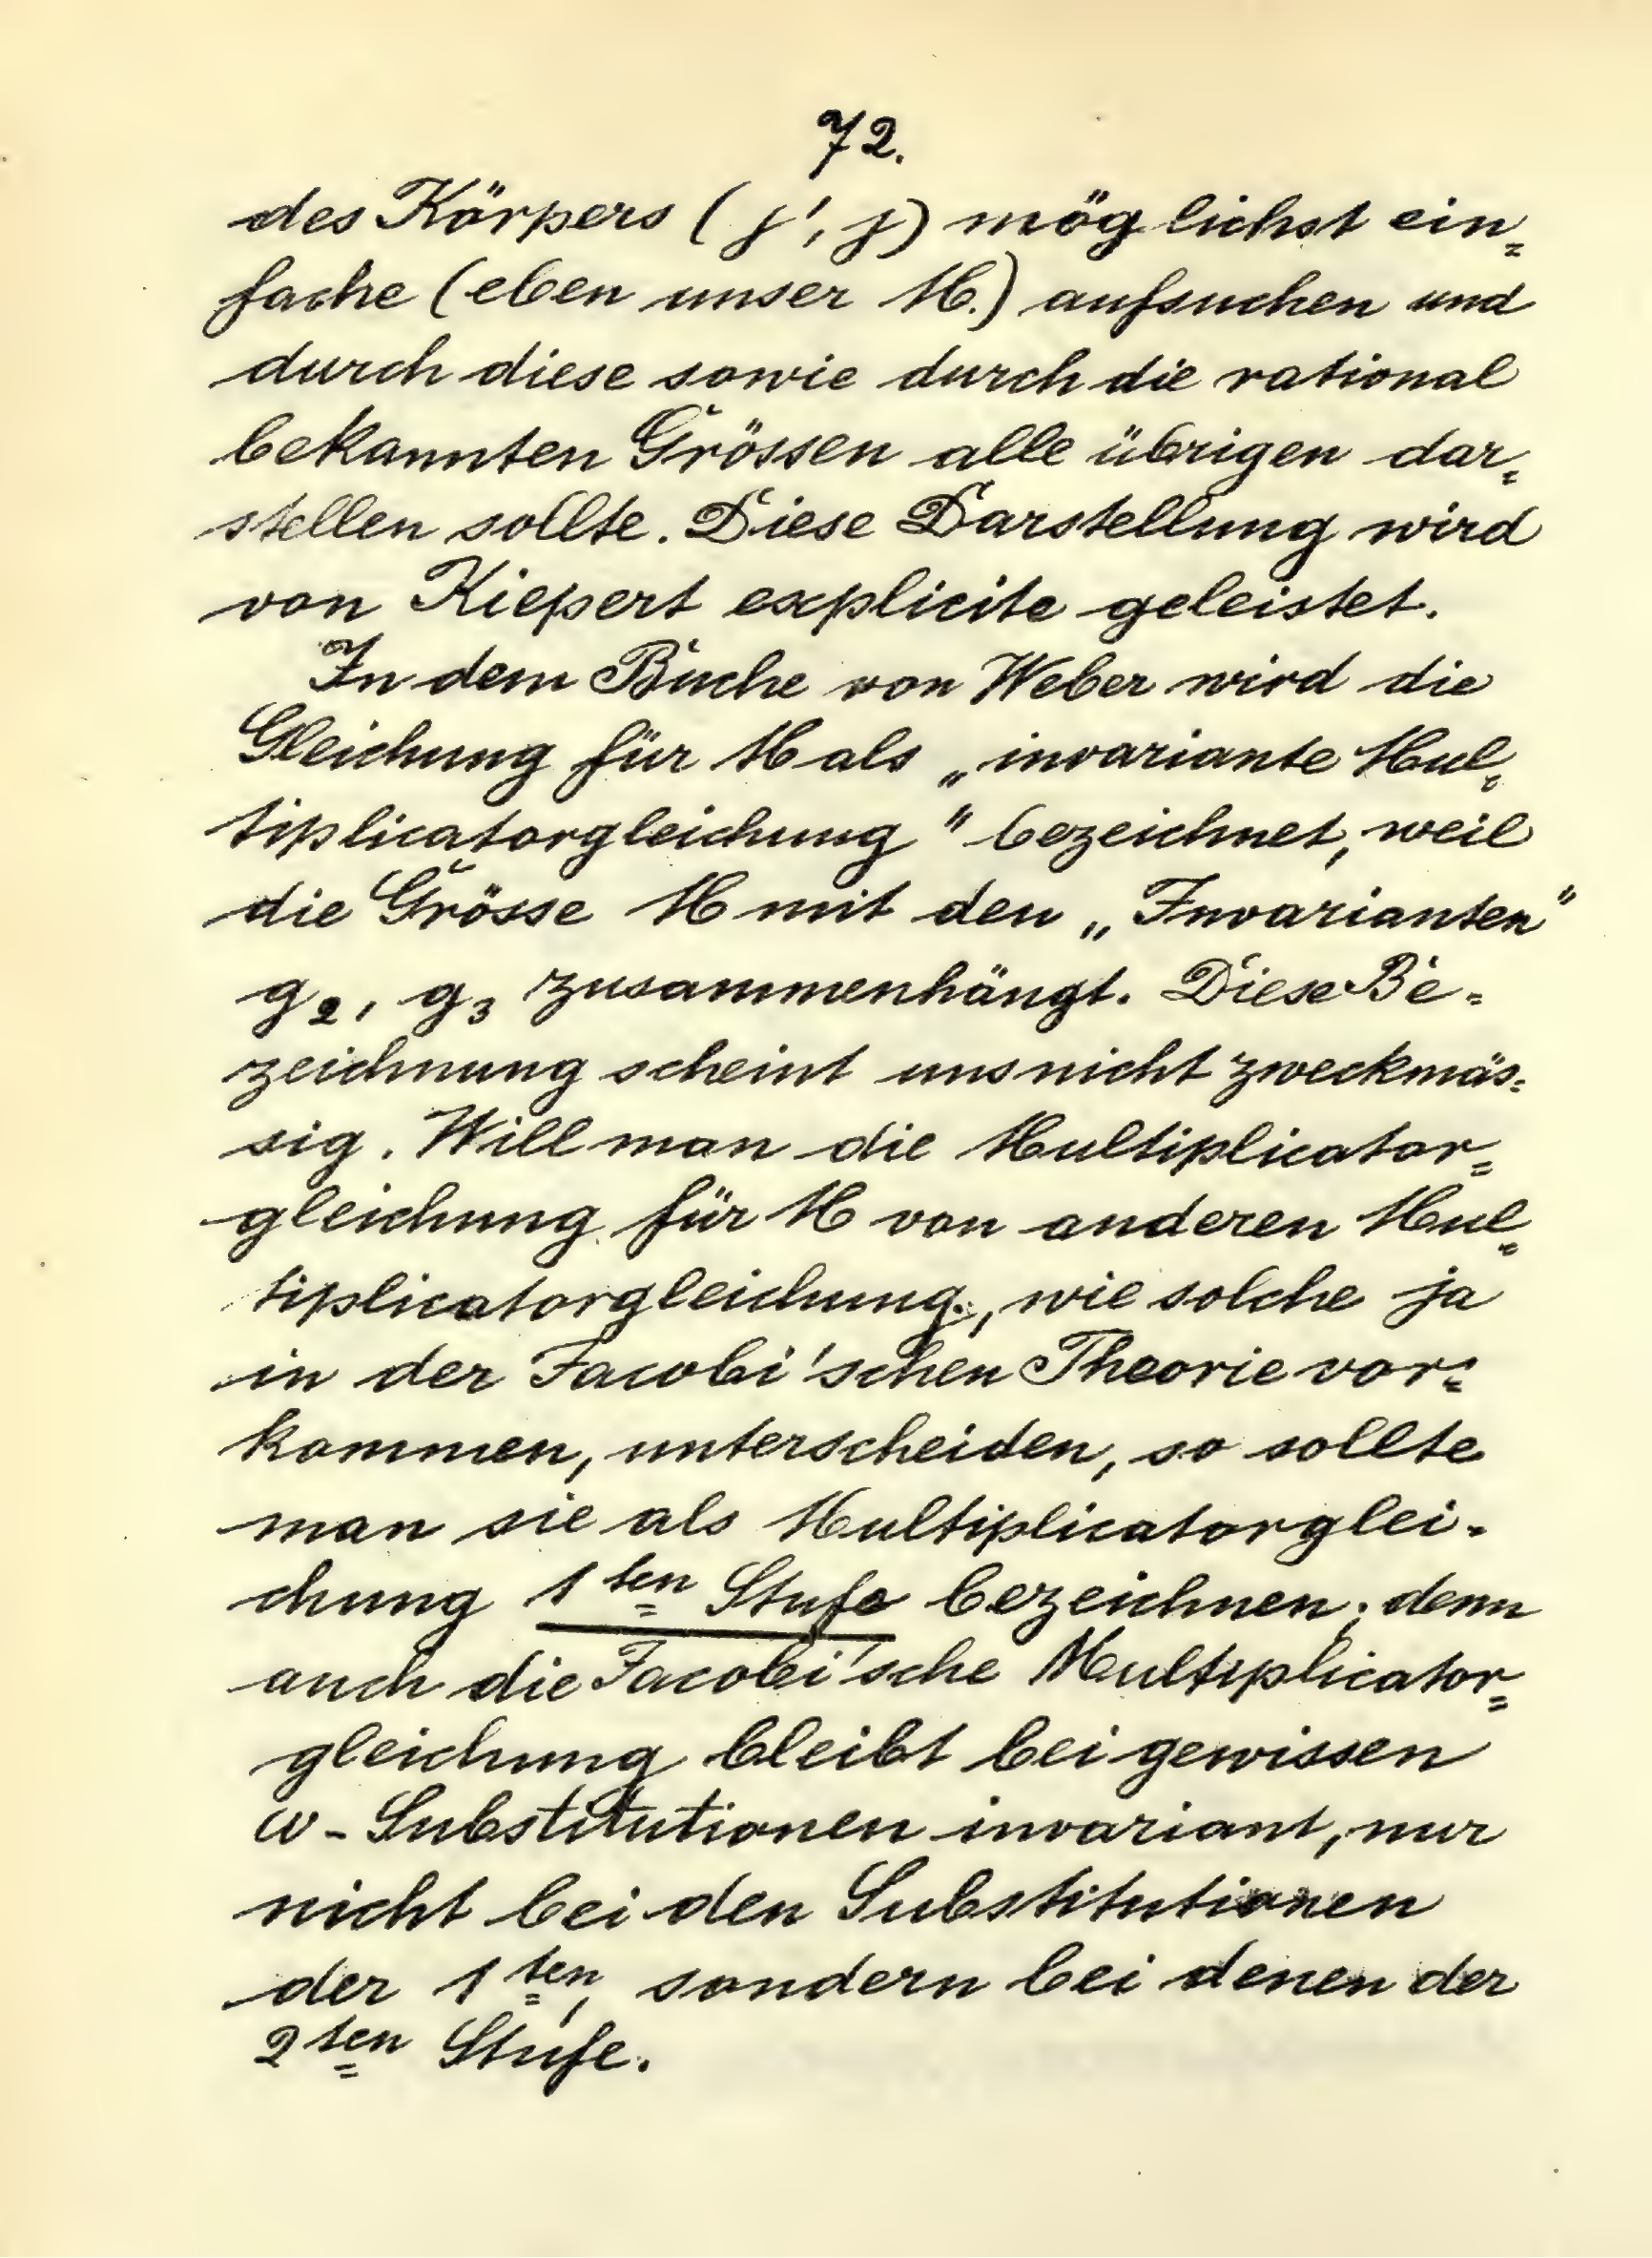 72.
des Körpers (j', j) möglichst ein=
fache (eben unser M.) aufsuchen und
durch diese sowie durch die rational
bekannten Grössen alle übrigen dar=
stellen sollte. Diese Darstellung wird
von Kiepert explicite geleistet.
In dem Buche von Weber wird die
Gleichung für M als „invariante Mul=
tiplicatorgleichung" bezeichnet, weil
die Grösse M mit den „Invarianten"
g₂, g₃ zusammenhängt. Diese Be=
zeichnung scheint uns nicht zweckmäs=
sig. Will man die Multiplicator=
gleichung für M von anderen Mul=
tiplicatorgleichung., wie solche ja
in der Jacobi'schen Theorie vor=
kommen, unterscheiden, so sollte
man sie als Multiplicatorglei=
chung 1ten Stufe bezeichnen; denn
auch die Jacobi'sche Multiplicator=
gleichung bleibt bei gewissen
ω-Substitutionen invariant, nur
nicht bei den Substitutionen
der 1ten, sondern bei denen der
2ten Stufe.